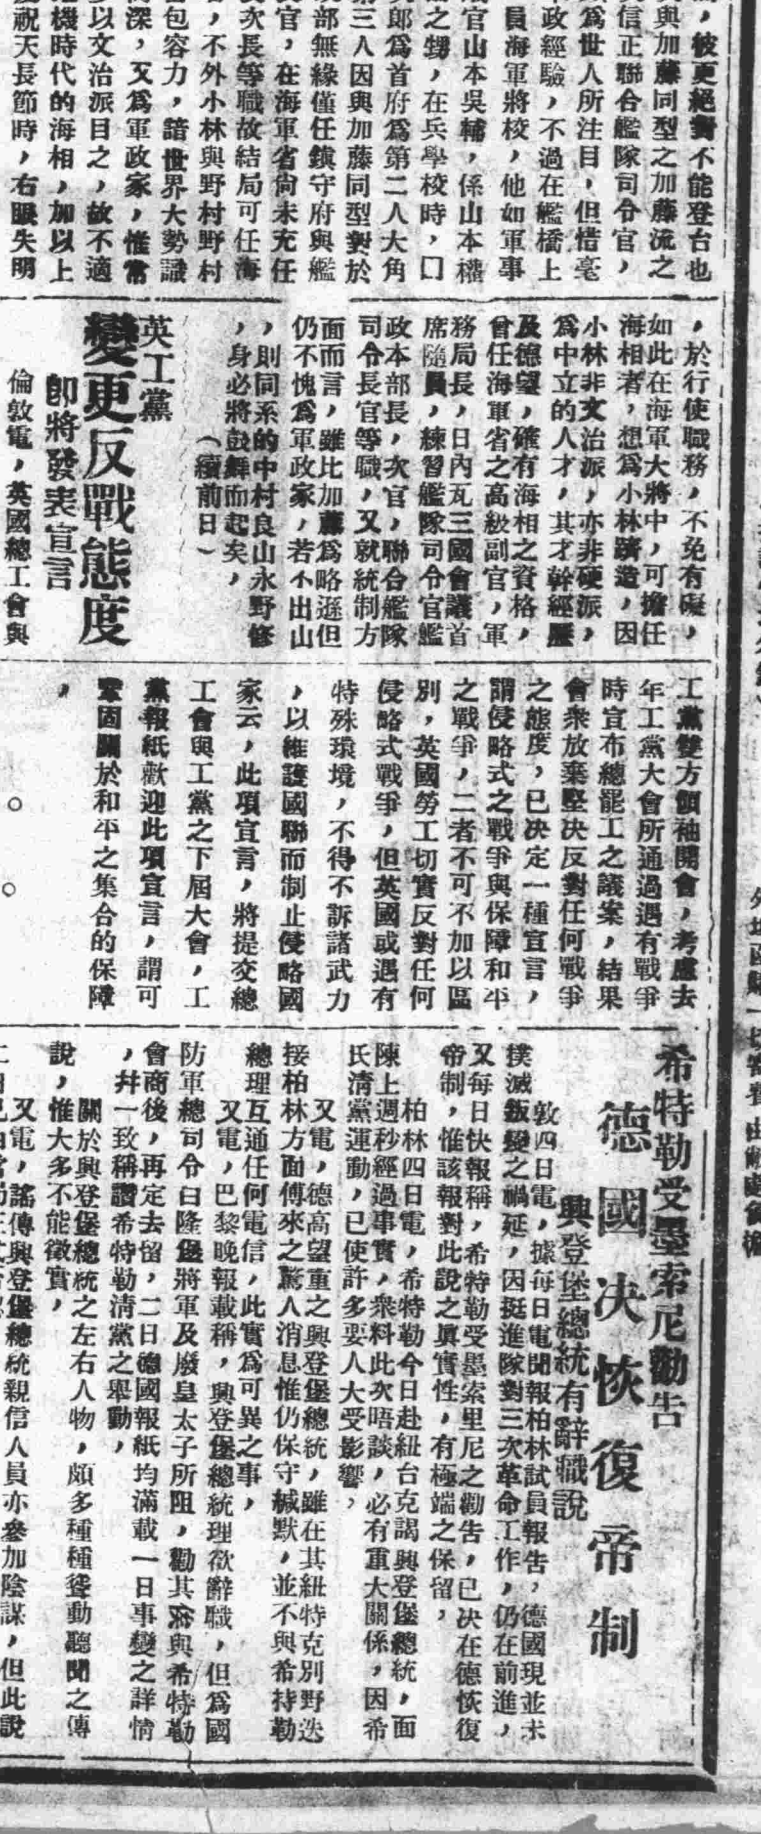 ，彼更絕對不能登台也
與加藤同型之加藤流之
信正聯合艦隊司令官，
為世人所注目，但惜毫
政經驗，不過在艦橋上
員海軍將校，他如軍事
官山本吳輔，係山本權
之甥，在兵學校時，囗
郎為首府為第二人大角
第三人因與加藤同型對於
部無緣僅任鎮守府與艦
官，在海軍省尙未充任
次長等職故結局可任海
，不外小林與野村野村
包容力，諳世界大勢識
深，又為軍政家，惟常
以文治派目之，故不適
機時代的海相，加以上
祝天長節時，右眼失明
，於行使職務，不免有礙，
如此在海軍大將中，可擔任
海相者，想為小林躋造，因
小林非文治派，亦非硬派，
為中立的人才，其才幹經歷
及德望，確有海相之資格，
曾任海軍省之高級副官，軍
務局長，日內瓦三國會議首
席隨員，練習艦隊司令官艦
政本部長，次官，聯合艦隊
司令長官等職，又就統制方
面而言，雖比加藤為略遜但
仍不愧為軍政家，若不出山
，則同系的中村良山永野修
，身必將鼓舞而起矣，
（續前日）
英工黨
變更反戰態度
即將發表宣言
倫敦電，英國總工會與
工黨雙方領袖開會，考慮去
年工黨大會所通過遇有戰爭
時宣布總罷工之議案，結果
會衆放棄堅决反對任何戰爭
之態度，已决定一種宣言，
謂侵略式之戰爭與保障和平
之戰爭，二者不可不加以區
別，英國勞工切實反對任何
侵略式戰爭，但英國或遇有
特殊環境，不得不訴諸武力
，以維護國聯而制止侵略國
家云，此項宣言，將提交總
工會與工黨之下屆大會，工
黨報紙歡迎此項宣言，謂可
鞏固關於和平之集合的保障
，
希特勒受墨索尼勸告
德國决恢復帝制
興登堡總統有辭職說
敦四日電，據每日電聞報柏林試員報告，德國現並未
撲滅叛變之禍延，因挺進隊對三次革命工作，仍在前進，
又每日快報稱，希特勒受墨索里尼之勸告，已决在德恢復
帝制，惟該報對此說之眞實性，有極端之保留，
柏林四日電，希特勒今日赴紐台克謁興登堡總統，面
陳上週秒經過事實，衆料此次晤談，必有重大關係，因希
氏淸黨運動，已使許多要人大受影響，
又電，德高望重之興登堡總統，雖在其紐特克別野迭
接柏林方面傳來之驚人消息惟仍保守緘默，並不與希持勒
總理互通任何電信，此實為可異之事，
又電，巴黎晚報載稱，興登堡總統理欲辭職，但為國
防軍總司令白隆堡將軍及廢皇太子所阻，勸其與希特勒
會商後，再定去留，二日德國報紙均滿載一日事變之詳情
，幷一致稱讚希特勒淸黨之舉動，
關於興登堡總統之左右人物，頗多種種聳動聽聞之傳
說，惟大多不能徵實，
又電，謠傳興登堡總統親信人員亦參加陰謀，但此說